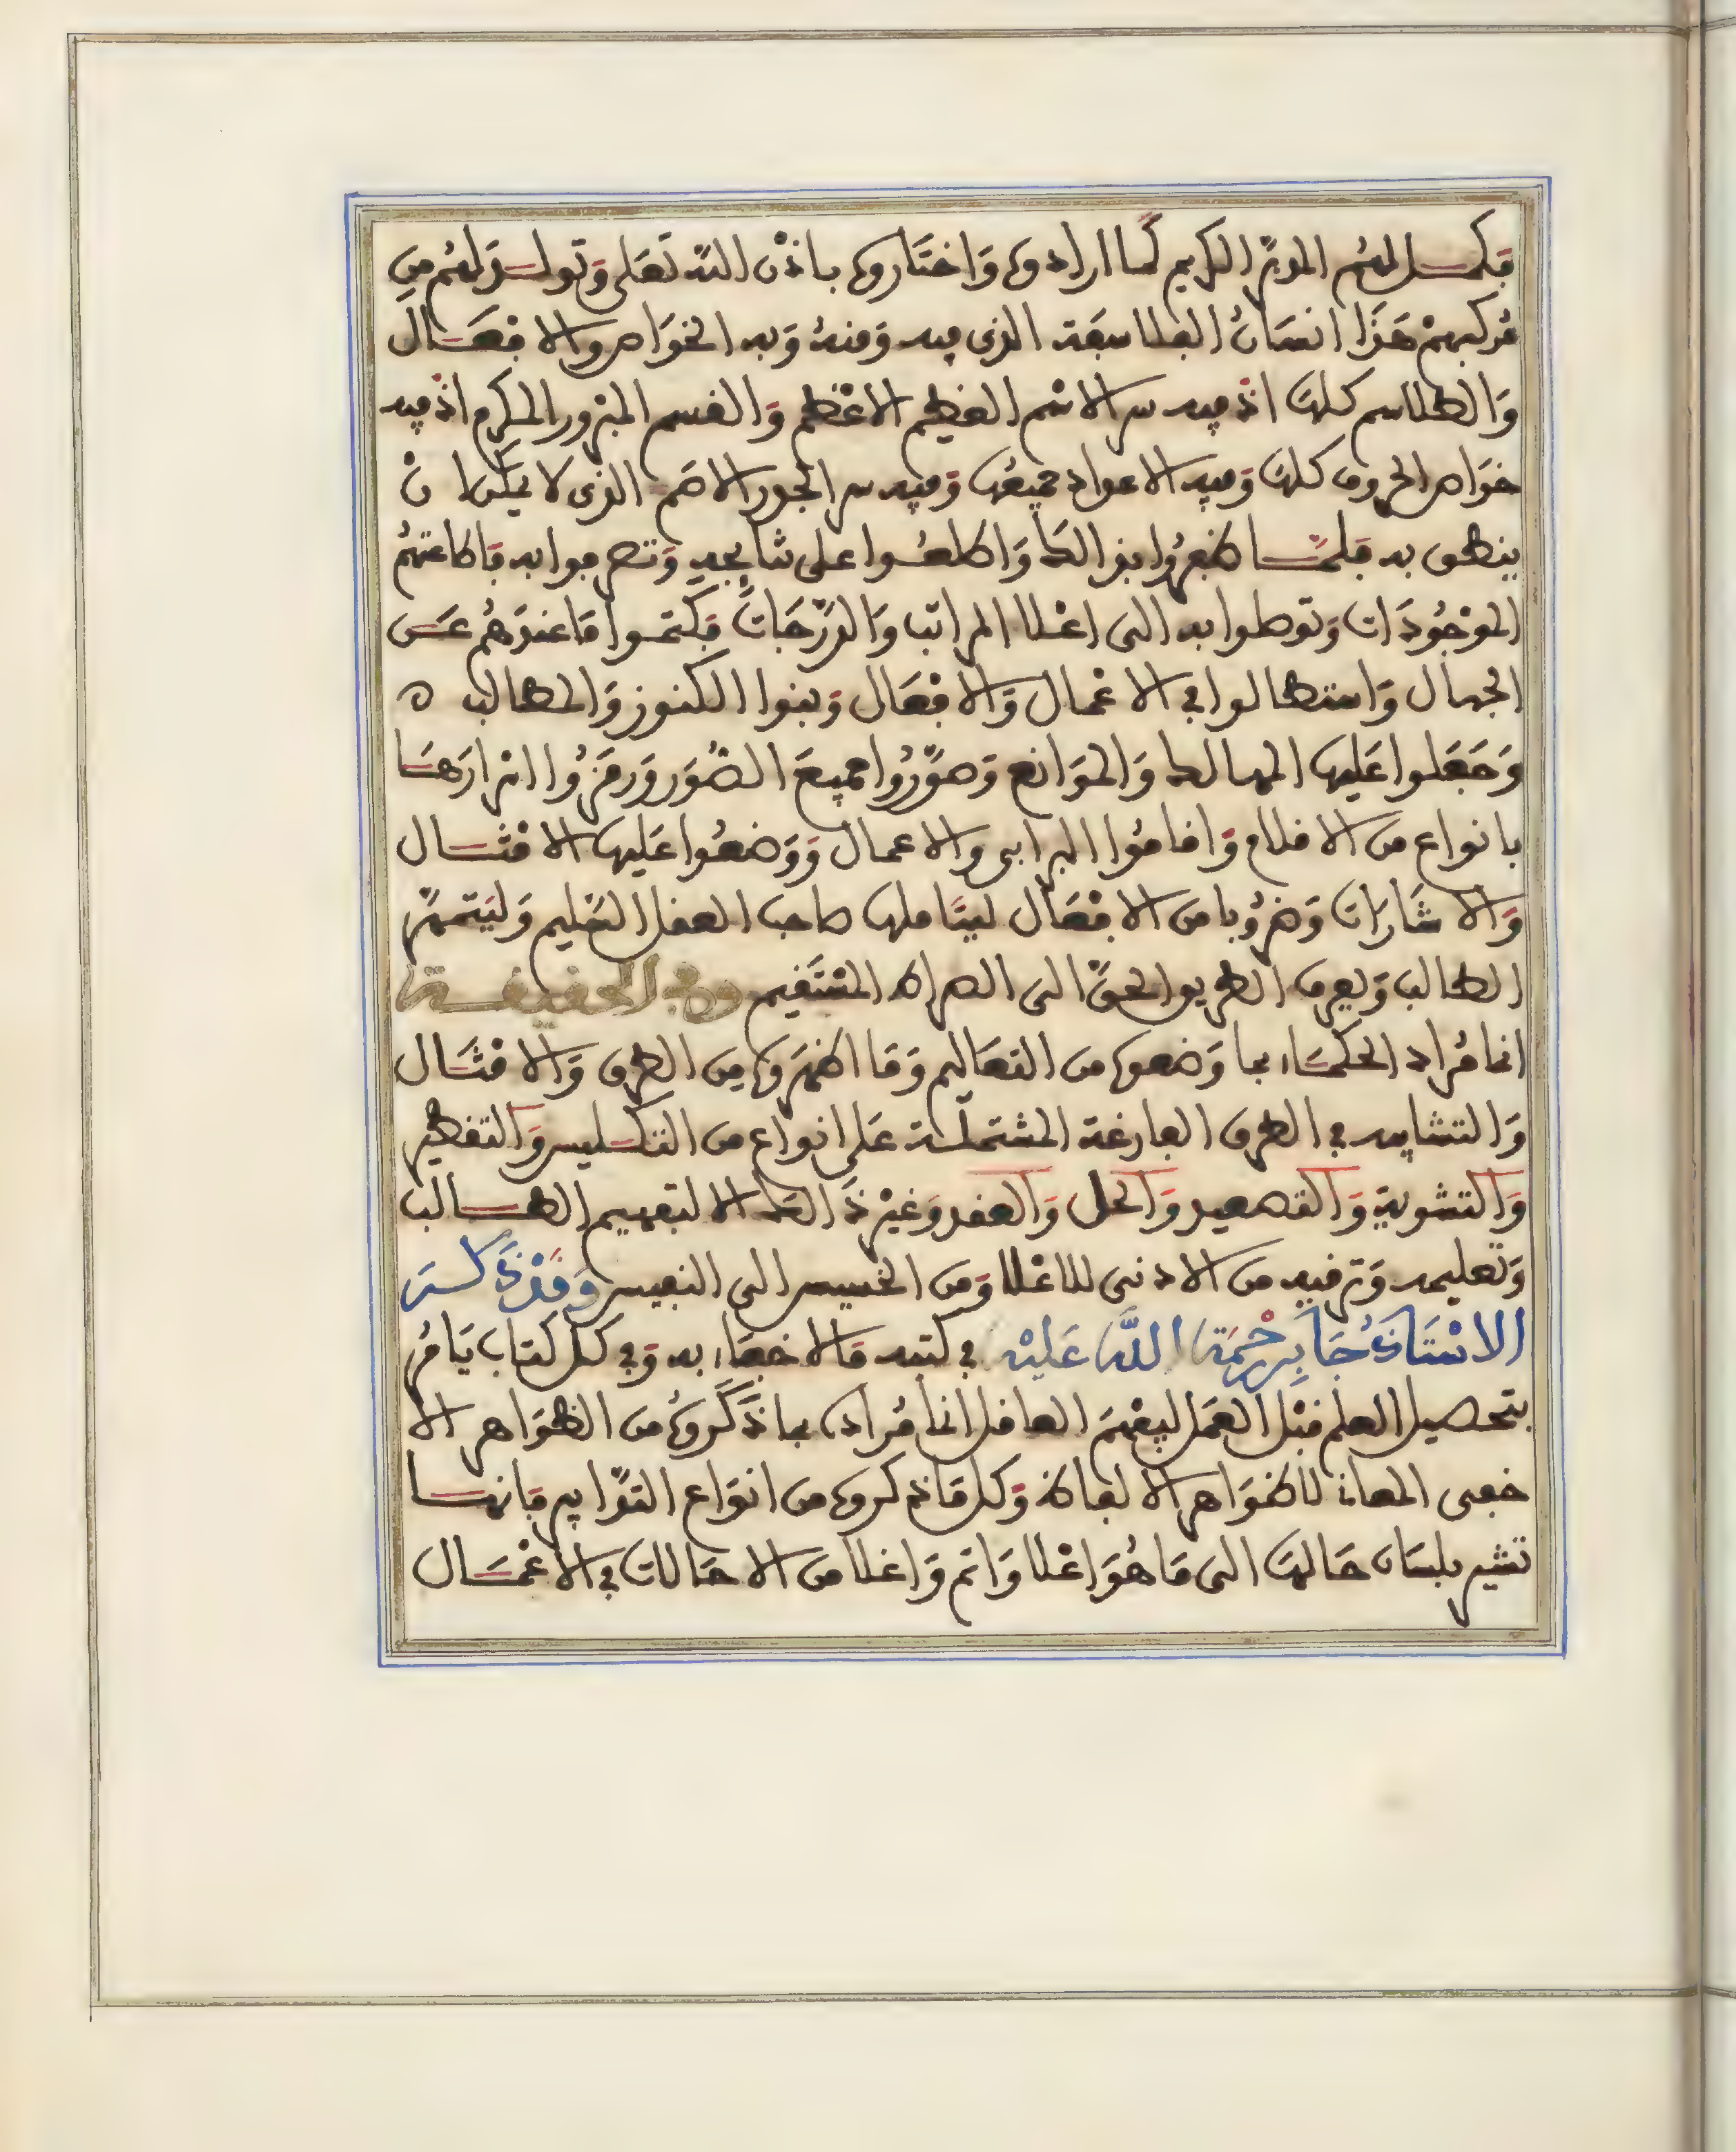 فكمل لهم المركز الكريم كما ارادوه وَاختَاروه باذن الله تعَلى وَتولدَ لهُم مِن
مُركبهمْ هَذَا انسَانُ الفلاسفَة الذى فيه وَمنهُ وَبه الخوَاص والافعَال
وَالطلاسم كلهَا اذ فيه سر الاسْم العَظِيم الاعْظم وَالقسم المبرور المكرم اذ فيه
خوَاص الحروف كلهَا وَفيه الاعداد جميعُهَا وَفيه سر الجذر الاصَم الذى لا يمكن ان
ينطق به فلمّا ظفرُوا بذالك وَاطلعُوا على شانِهِ وَتصرفوا به فاطاعتهُم
الموْجُودَات وَتوصلوا به الى اعْلا المراتب وَالدّرَجَات فكتمُوا مَا عندَهُم عَن
الجهال وَاستطالوا فى الاعْمال وَالافْعَال وَبنوا الكنوز وَالمطالب ه
وَجَعَلوا عَليها المهالك وَالموَانع وَصوَّرُوا جميعَ الصُوَر وَرمَزُوا اسْرارَهَا
بانواع من الاقلام وَاقامُوا البرابى والاعمال وَوَضعُوا عَليها الامْثال
وَالاشَارَات وَضرُوبا من الافْعَال ليتَاملها صاحب العقل السَليم وَليَتميّز
الطالب وَيعرف الطريق الحقَّ الى الصراط المسْتَقيم وفى الحقيقة
انما مُراد الحكمَاء بما وَضعوه من التعَاليم وَمَا اظهَروه مِن الطرق وَالامثَال
وَالتشابيه فى الطرق الفارغة المشتملَة عَلى انواع من التكليس وَالتقطير
وَالتشوية وَالتصعيد وَالحل وَالعقد وَغيْر ذَالك الا لتفهيم الطالب
وَتعليمه وَترقيه من الادنى للاعْلا وَمن الخسيس الى النفيس وَقدْ ذَكرَ
الاسْتَاذُ جَابِر رحْمَة اللَّه عَليْه فى كتبه مالا خفَاء به وَفى كل كتاب يَامُر
بتحصيل العلم قبْل العَمَل ليفْهَمَ العاقل انما مُراده بما ذَكَروهُ من الظوَاهر الا
خفى المعان لا ظوَاهر الالفاظ وَكل مَا ذكروه من انوَاع التدَابير فانهَا
تشير بلسَان حَالهَا الى مَا هُوَ اعْلا وَاتم وَاغلا من الاحَالات فى الاعْمَال